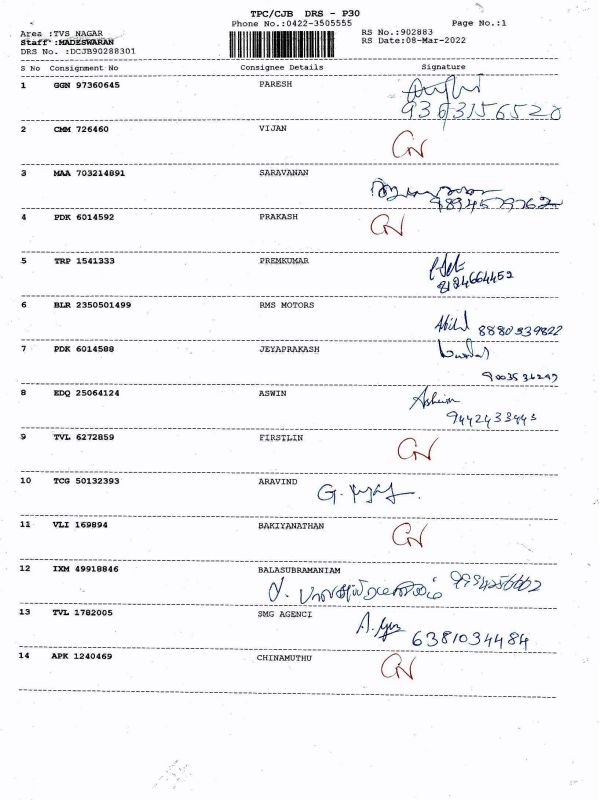 TPC/CJB DRS - P30
Phone No.:0422-3505555 Page No.:1
Area :TVS NAGAR RS No.:902883
Staff :MADESWARAN RS Date:08-Mar-2022
DRS No. :DCJB90288301
S No Consignment No Consignee Details Signature
1 GGN 97360645 PARESH
9363156520
2 CMM 726460 VIJAN
CN
3 MAA 703214891 SARAVANAN
9894579762
4 PDK 6014592 PRAKASH CN
5 TRP 1541333 PREMKUMAR
8124664452
6 BLR 2350501499 RMS MOTORS
8880539822
7 PDK 6014588 JEYAPRAKASH
8 EDQ 25064124 ASWIN
9442433443
9 TVL 6272859 FIRSTLIN CN
10 TCG 50132393 ARAVIND
G.
11 VLI 169894 BAKIYANATHAN CN
12 IXM 49918846 BALASUBRAMANIAM
13 TVL 1782005 SMG AGENCI
6381034484
14 APK 1240469 CHINAMUTHU CN